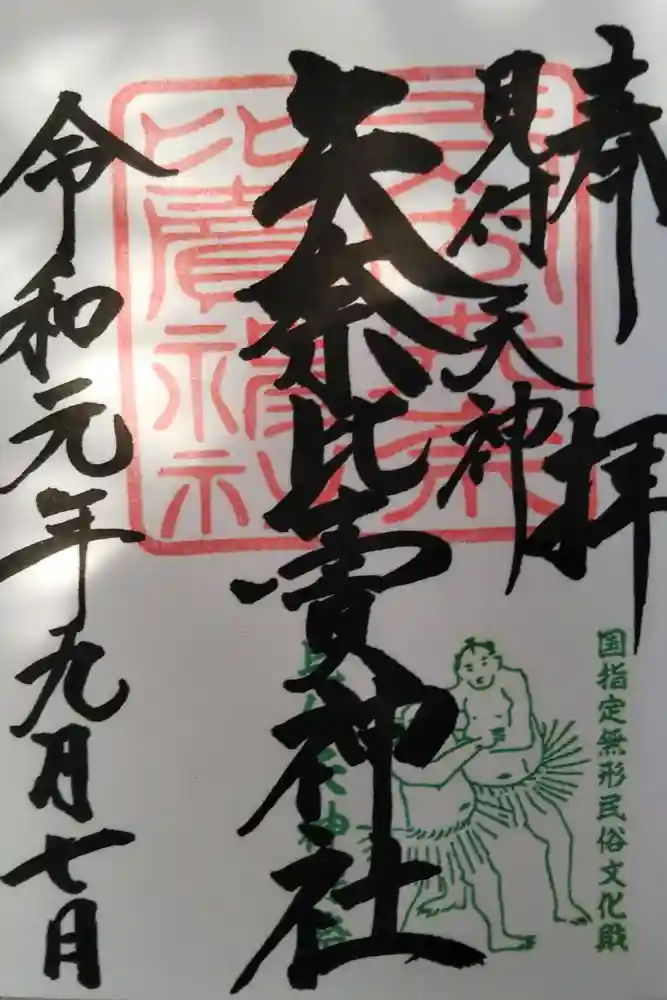 奉拝
見付天神
矢奈比賣神社
令和元年九月七日
国指定無形民俗文化財